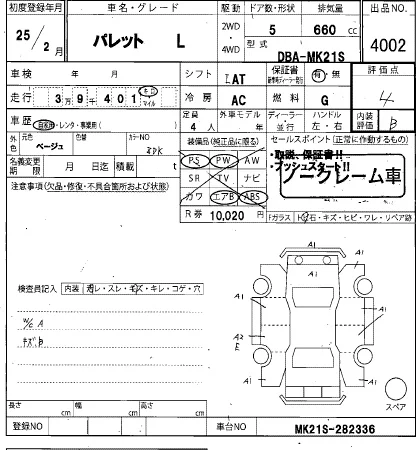 初度登録年月 車名・グレード 駆動 ドア数・形状 排気量 出品NO.
25年 2月 パレット L 2WD・4WD 5 660cc 4002
型式 DBA-MK21S
車検 年 月 シフト IAT 保証書 有・無 評価点
走行 3万9千401 キロ マイル 冷房 AC 燃料 G 4
車歴 自家用・レンタ・事業用( ) 定員 4人 外車モデル 年 ディーラー・並行 ハンドル 左・右 内装評価 B
外色 元色 ベージュ カラーNO 装備品(純正品に限る) セールスポイント(正常に作動するもの)
名義変更期限 月 日迄 積載 t PS PW AW ・取説、保証書!!
・プッシュスタート!!
注意事項(欠品・修復・不具合箇所および状態) SR TV ナビ ノークレーム車
カワ エアB ABS
R券 10,020円 Fガラス
検査員記入 内装 スレ・キズ・キレ・コゲ・穴
W/C A
キズ B
A1 A1
A1 A1
A2 E A1
A1 A1
A1
長さ cm 幅 cm 高さ cm スペア
登録NO 車台NO MK21S-282336